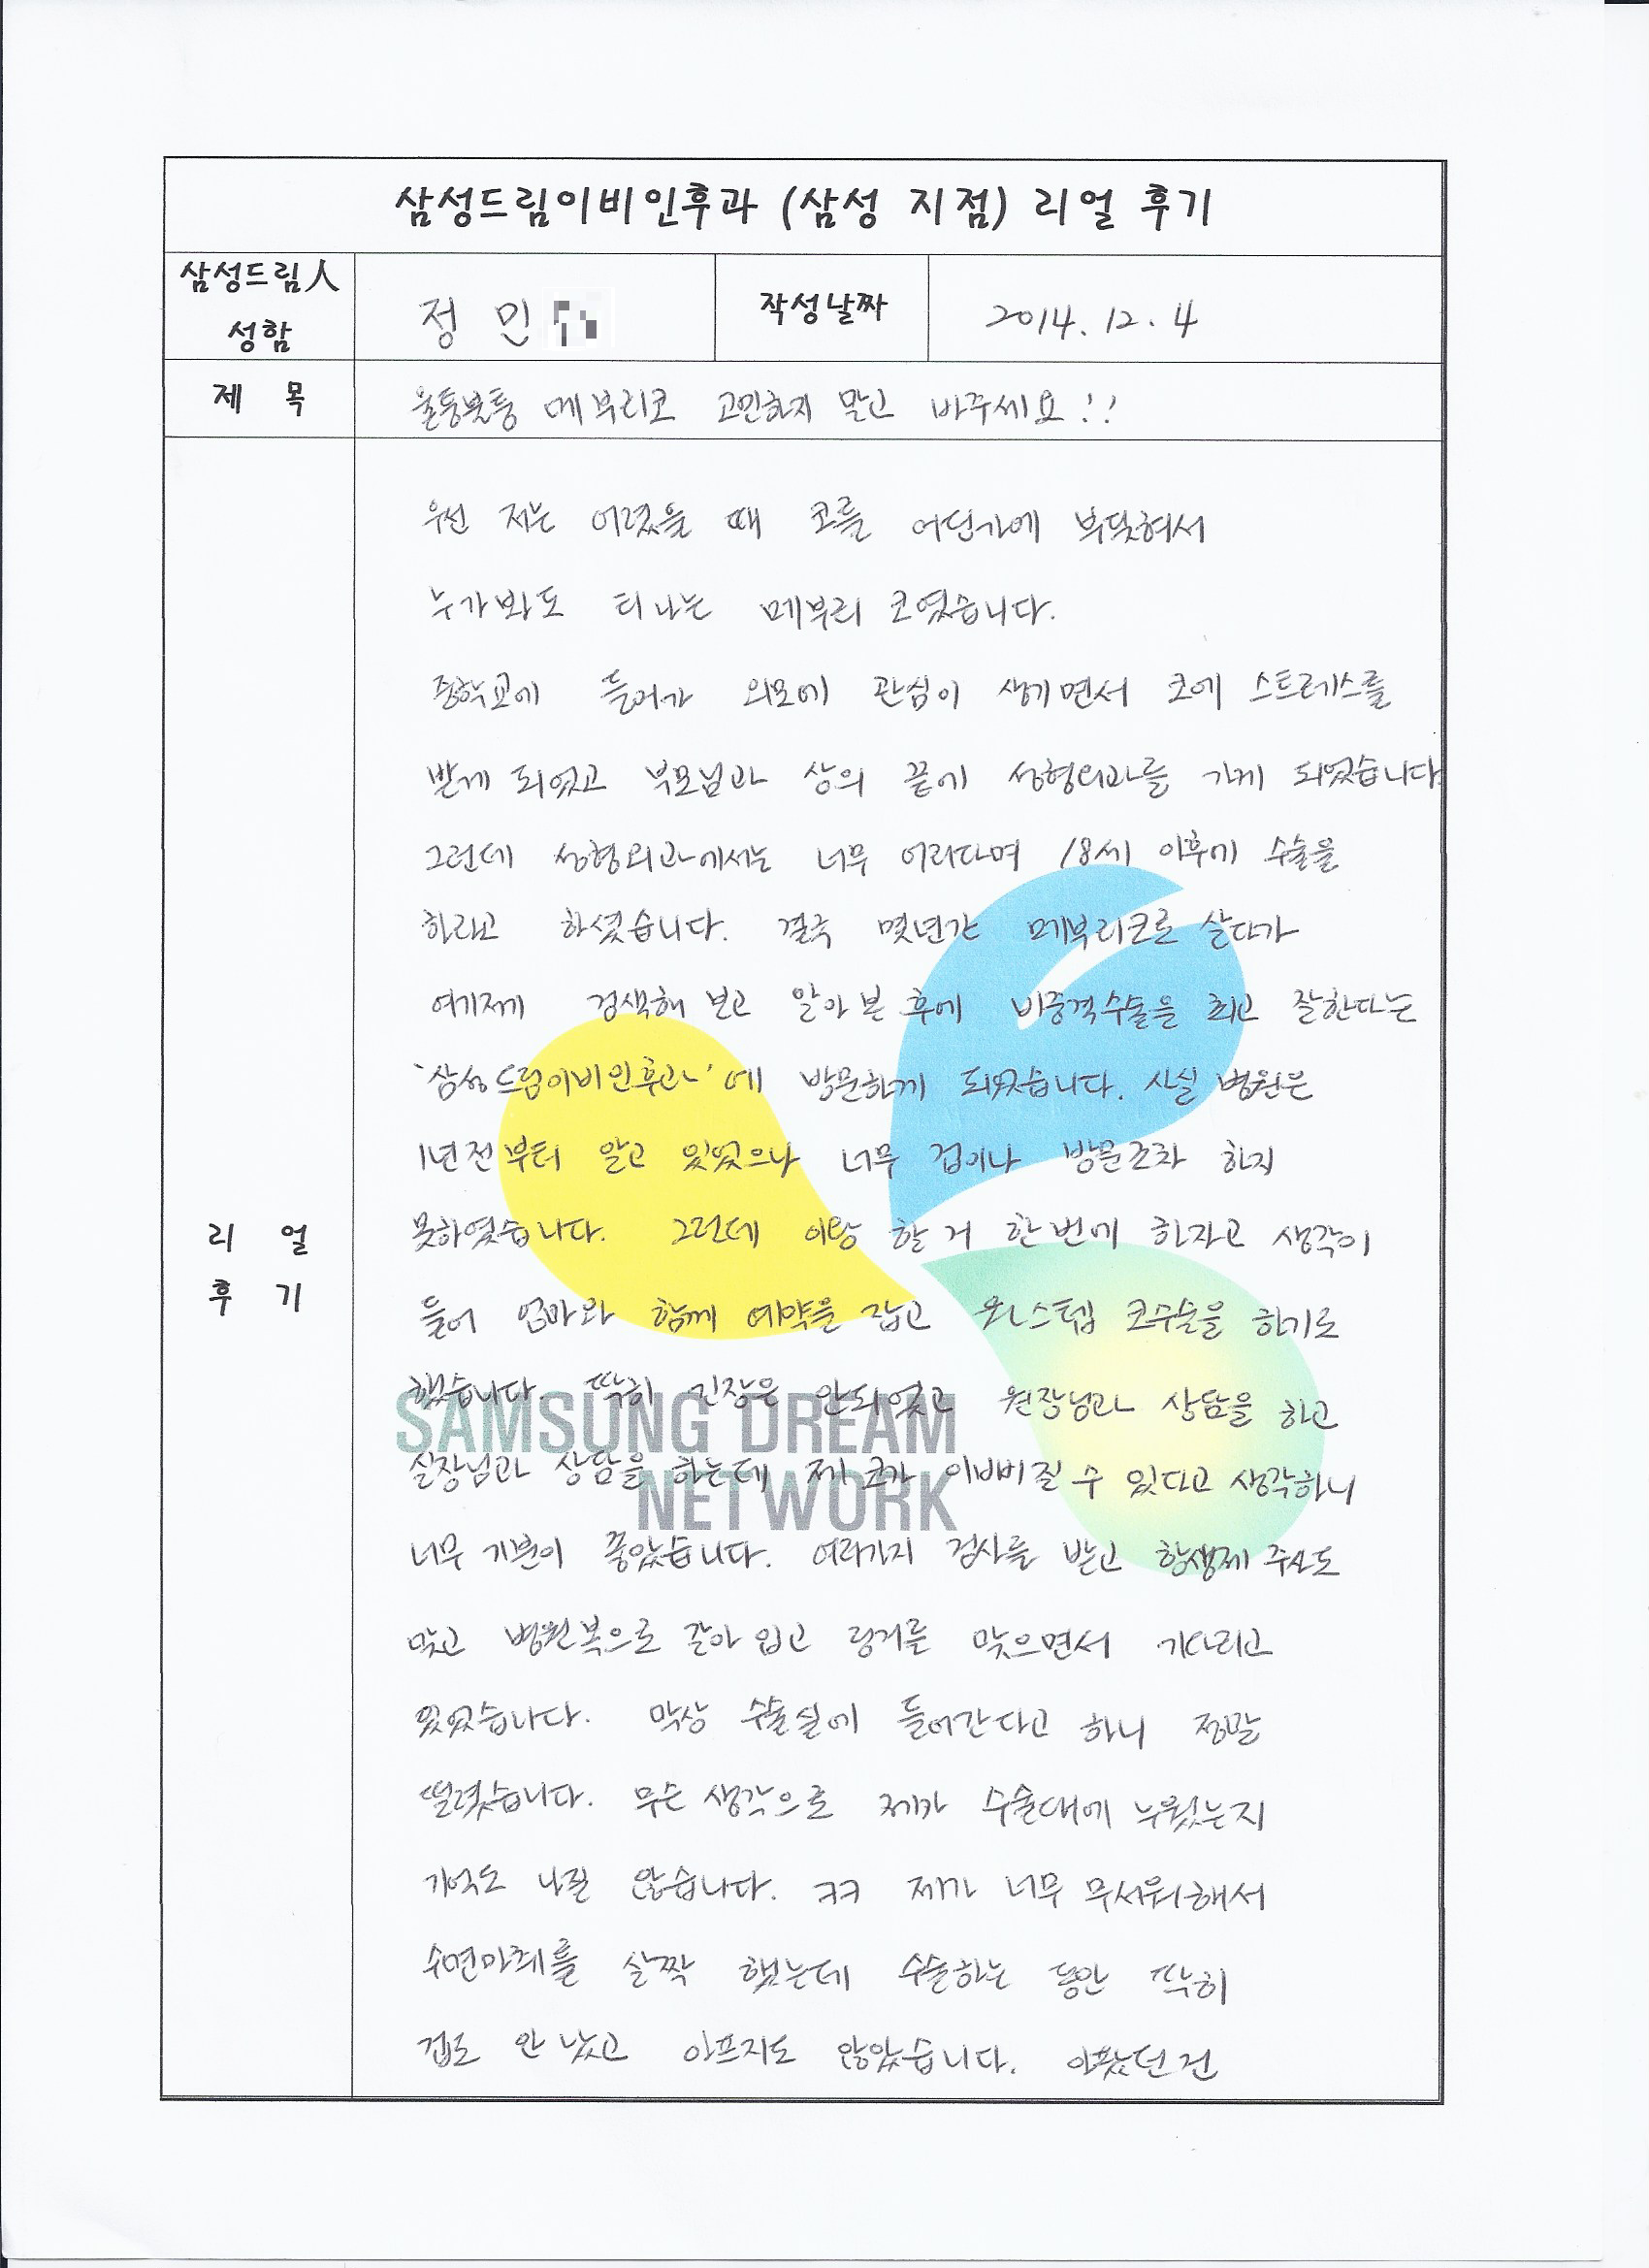 삼성드림이비인후과 (삼성 지점) 리얼 후기
삼성드림人
성함
정 민
작성날짜
2014. 12. 4
제 목
울퉁불퉁 메부리코 고민하지 말고 바꾸세요!!
우선 저는 어렸을 때 코를 어딘가에 부딪혀서
누가봐도 티나는 메부리 코였습니다.
중학교에 들어가 외모에 관심이 생기면서 코에 스트레스를
받게 되었고 부모님과 상의 끝에 성형외과를 가게 되었습니다
그런데 성형외과에서는 너무 어리다며 18세 이후에 수술을
하라고 하셨습니다. 결국 몇년간 메부리코로 살다가
여기저기 검색해 보고 알아 본 후에 비중격수술을 최고 잘한다는
'삼성드림이비인후과'에 방문하게 되었습니다. 사실 병원은
1년전부터 알고 있었으나 너무 겁이나 방문조차 하지
못하였습니다. 그런데 이왕 할 거 한번에 하자고 생각이
들어 엄마와 함께 예약을 잡고 원스텝 코수술을 하기로
했습니다. 딱히 긴장은 안되었고 원장님과 상담을 하고
실장님과 상담을 하는데 제 코가 이뻐질 수 있다고 생각하니
너무 기분이 좋았습니다. 여러가지 검사를 받고 항생제 주사도
맞고 병원복으로 갈아 입고 링거를 맞으면서 기다리고
있었습니다. 막상 수술실에 들어간다고 하니 정말
떨렸습니다. 무슨 생각으로 제가 수술대에 누웠는지
기억도 나질 않습니다. ㅋㅋ 제가 너무 무서워해서
수면마취를 살짝 했는데 수술하는 동안 딱히
겁도 안 났고 아프지도 않았습니다. 아팠던 건
리 얼
후 기
SAMSUNG DREAM
NETWORK